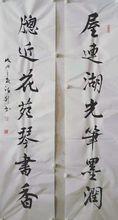 屋連湖光筆墨潤
牕近花苑琴書香